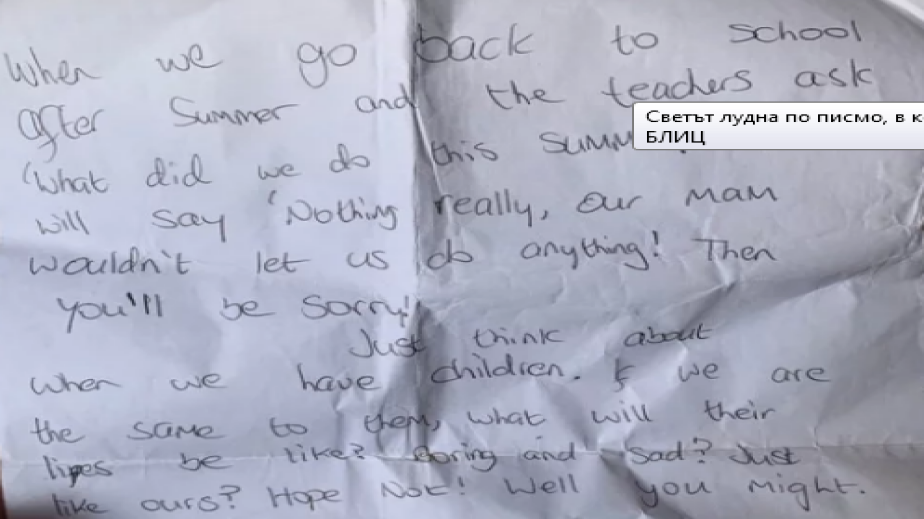 When we go back to school
after Summer and the teachers ask
Светът лудна по писмо, в к
БЛИЦ
'What did we do this summ
will say 'Nothing really, our mam
wouldn't let us do anything! Then
you'll be sorry!
Just think about
when we have children. If we are
the same to them, what will their
lives be like? Boring and sad? Just
like ours? Hope Not! Well you might.